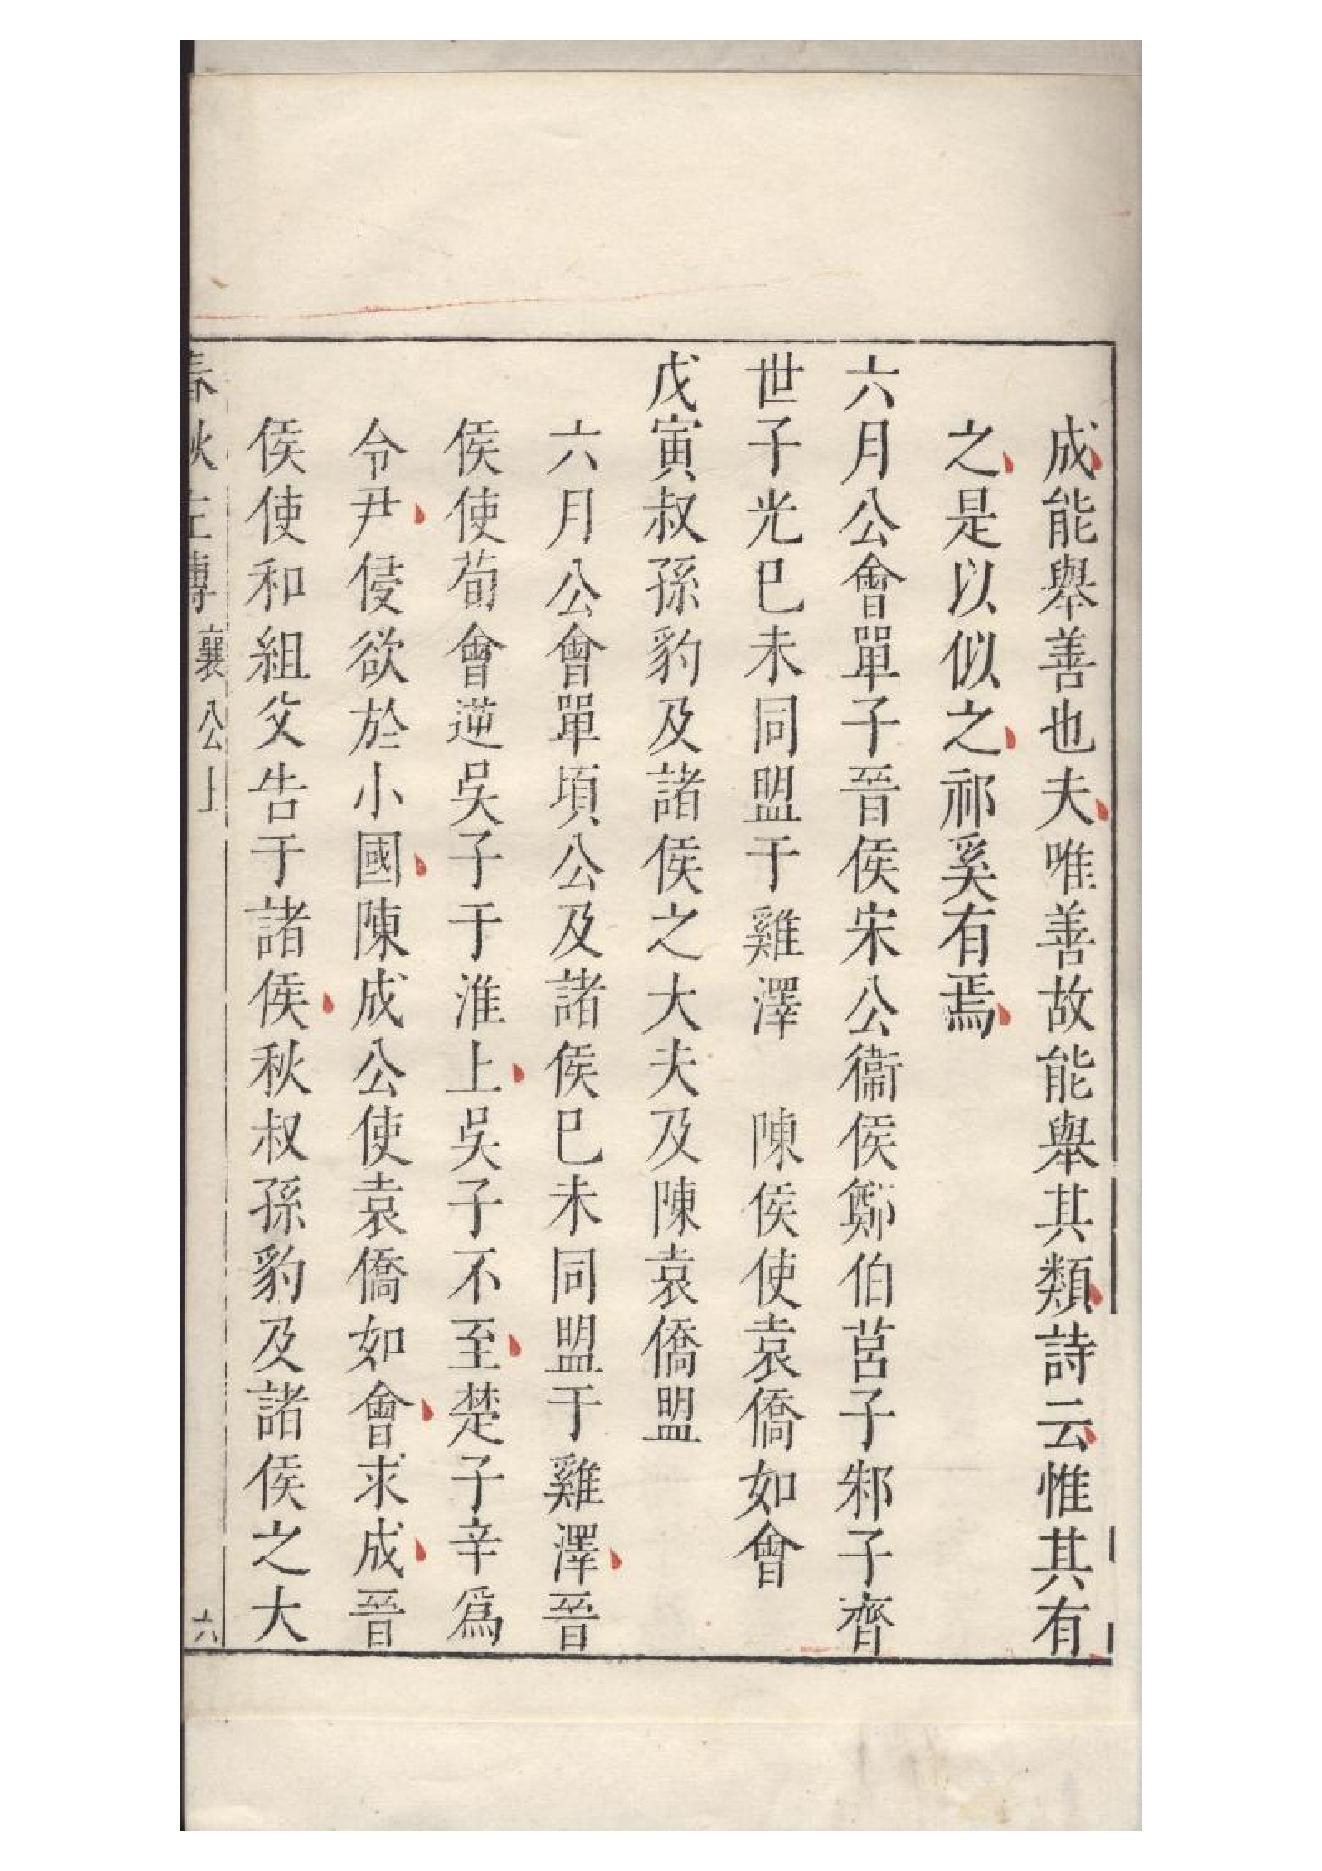 成能舉善也夫唯善故能舉其類詩云惟其有
之是以似之祁奚有焉
六月公會單子晉侯宋公衞侯鄭伯莒子邾子齊
世子光巳未同盟于雞澤　陳侯使袁僑如會
戊寅叔孫豹及諸侯之大夫及陳袁僑盟
六月公會單頃公及諸侯巳未同盟于雞澤晉
侯使荀會逆吳子于淮上吳子不至楚子辛爲
令尹侵欲於小國陳成公使袁僑如會求成晉
侯使和組父告于諸侯秋叔孫豹及諸侯之大
春秋左傳 襄公上 六